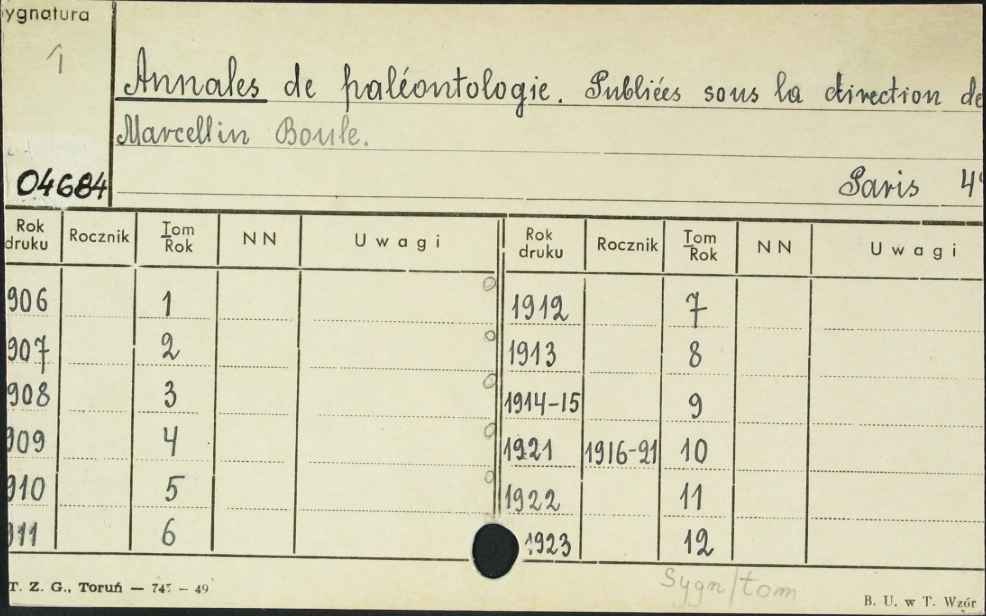 ygnatura
1
Annales de paléontologie. Publiées sous la direction de
Marcellin Boule.
04684
Paris 4°
Rok druku Rocznik Tom Rok NN Uwagi Rok druku Rocznik Tom Rok NN Uwagi
906 1 1912 7
907 2 1913 8
908 3 1914-15 9
909 4 1921 1916-21 10
910 5 1922 11
911 6 1923 12
Sygn/tom
T. Z. G., Toruń — 747 — 49
B. U. w T. Wzór